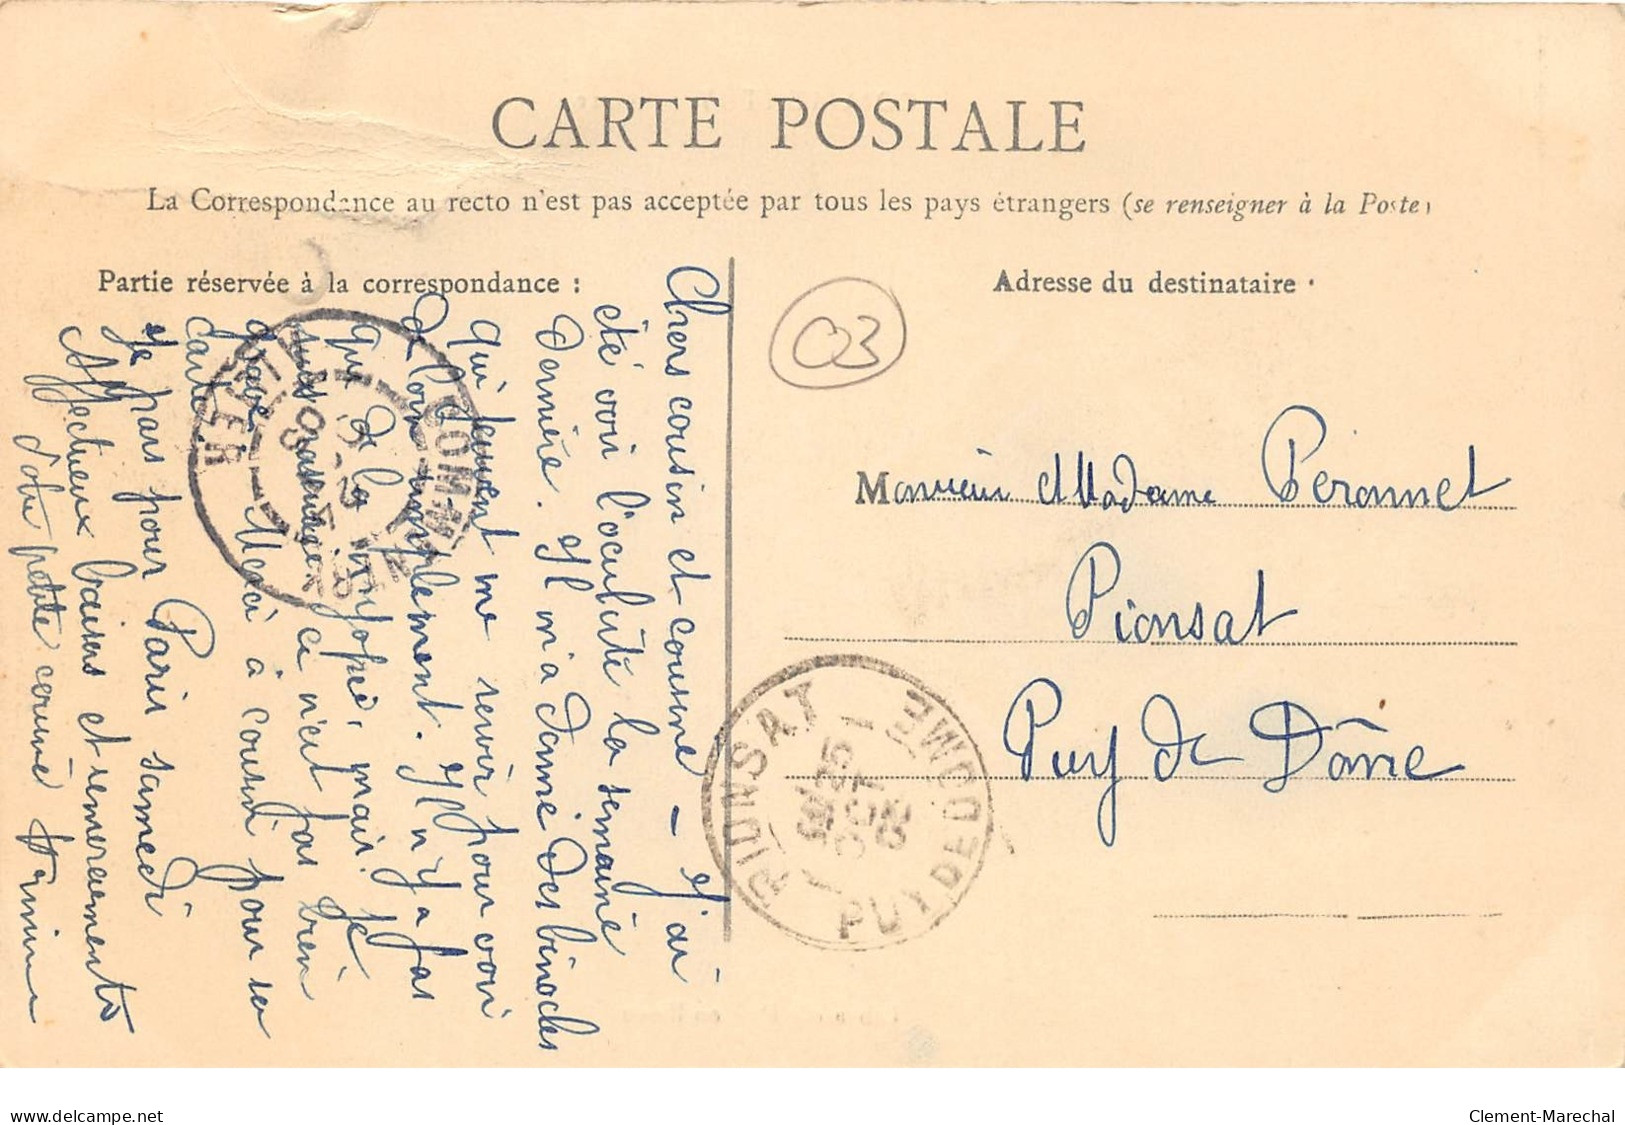 CARTE POSTALE
La Correspondance au recto n'est pas acceptée par tous les pays étrangers (se renseigner à la Poste)
Partie réservée à la correspondance :
Adresse du destinataire
03
Chers cousin et cousine – J'ai
été voir l'oculiste la semaine
dernière. Il m'a donné des binocles
qui peuvent me servir pour voir
de loin simplement. Il n'y a pas
que de la myopie, mais je
suis rassurée ci n'est pas bien
grave. Merci à cousin pour sa
carte.
Je pars pour Paris samedi
Affectueux baisers et remerciements
d'otre petite cousine
Monsieur et Madame Peronnet
Pionsat
Puy de Dôme
COMMENTRY
ALLIER
PIONSAT
PUY DE DOME
25
OCT
05
www.delcampe.net
Clement-Marechal